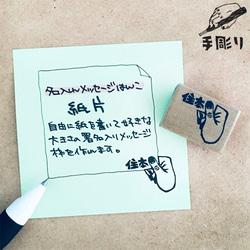 手彫り
名入れメッセージはんこ
紙片
自由に紙を書いて好きな
大きさの署名入りメッセージ
枠を作れます。
住本
住本